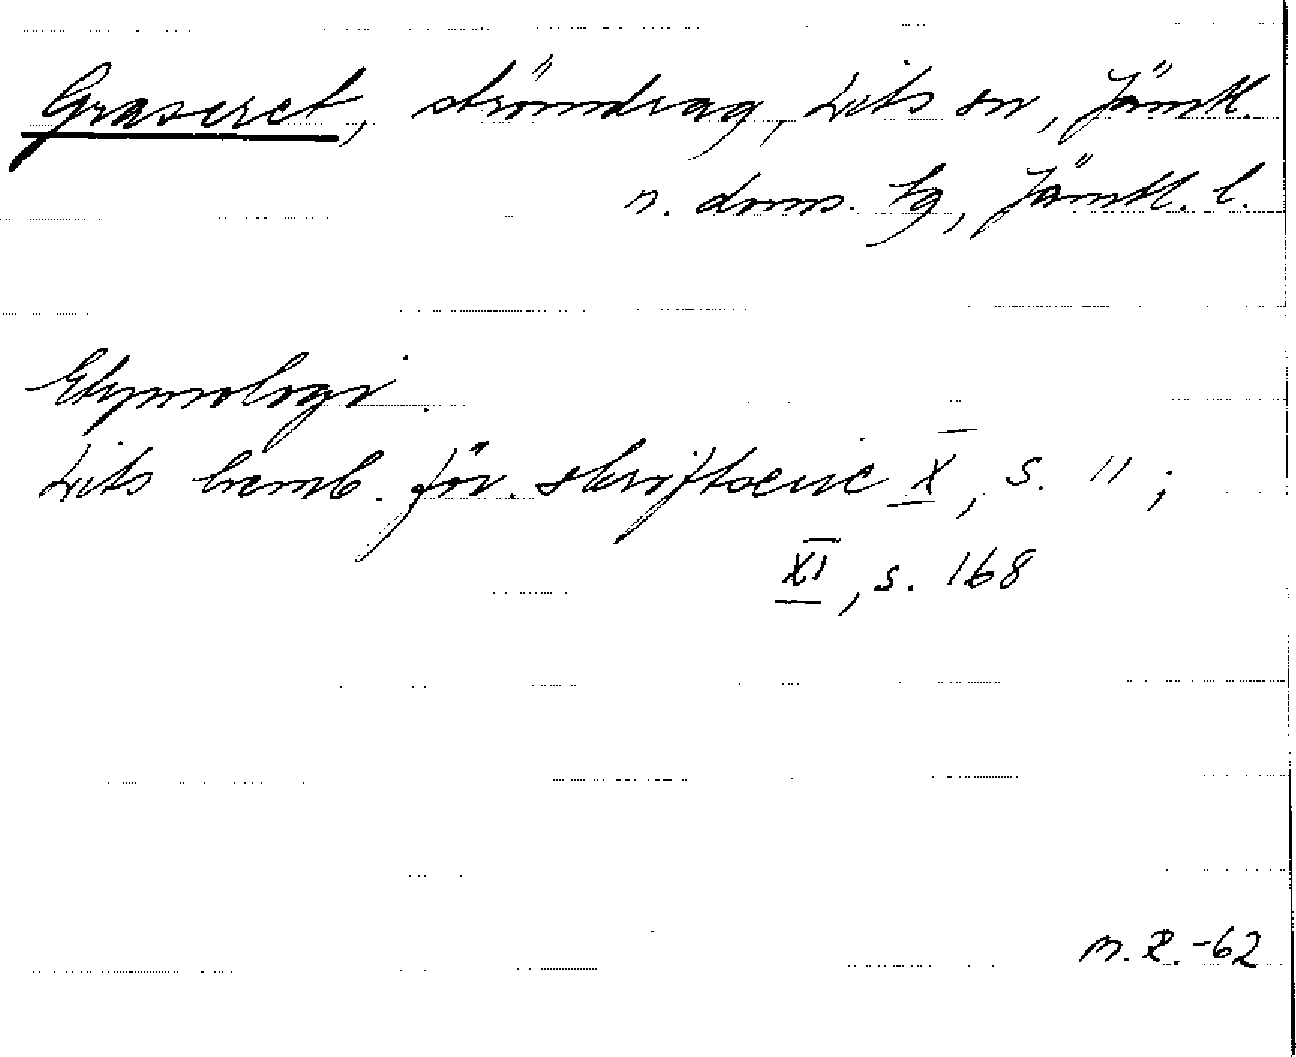 Graseret, strömdrag, Lits sn, Jämtl.
n. doms. tg, Jämtl. l.
Etymologi.
Lits hemb. för. skriftserie X, s. 11;
XI, s. 168
M.R.-62